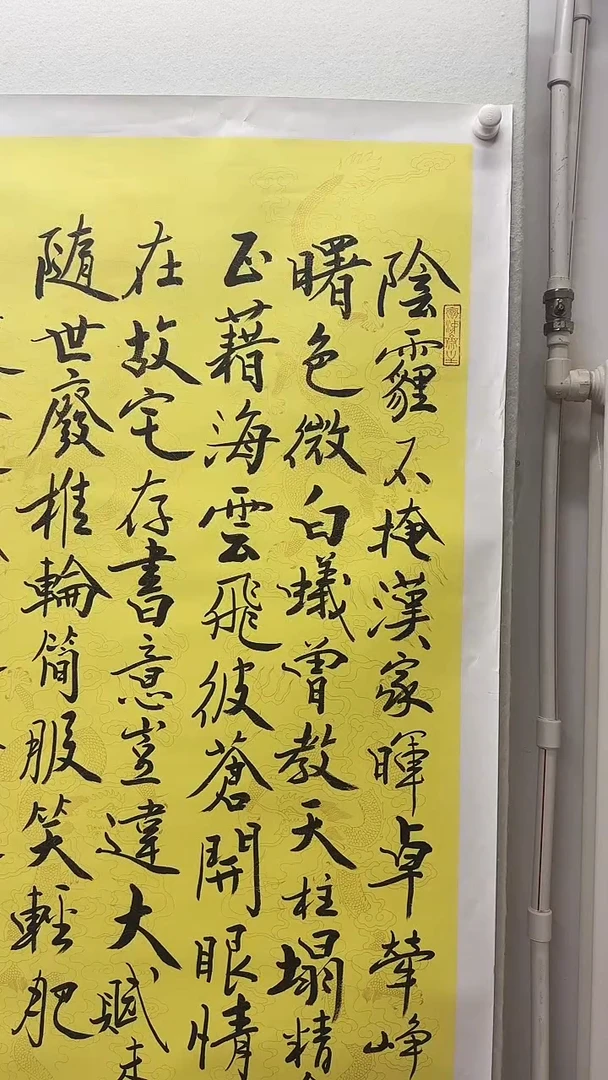 陰霾不掩漢家暉卓犖崢
曙色微白蟻曾教天柱塌精
正藉海雲飛彼蒼開眼情
在故宅存書意豈違大賦
隨世廢椎輪簡服笑輕肥